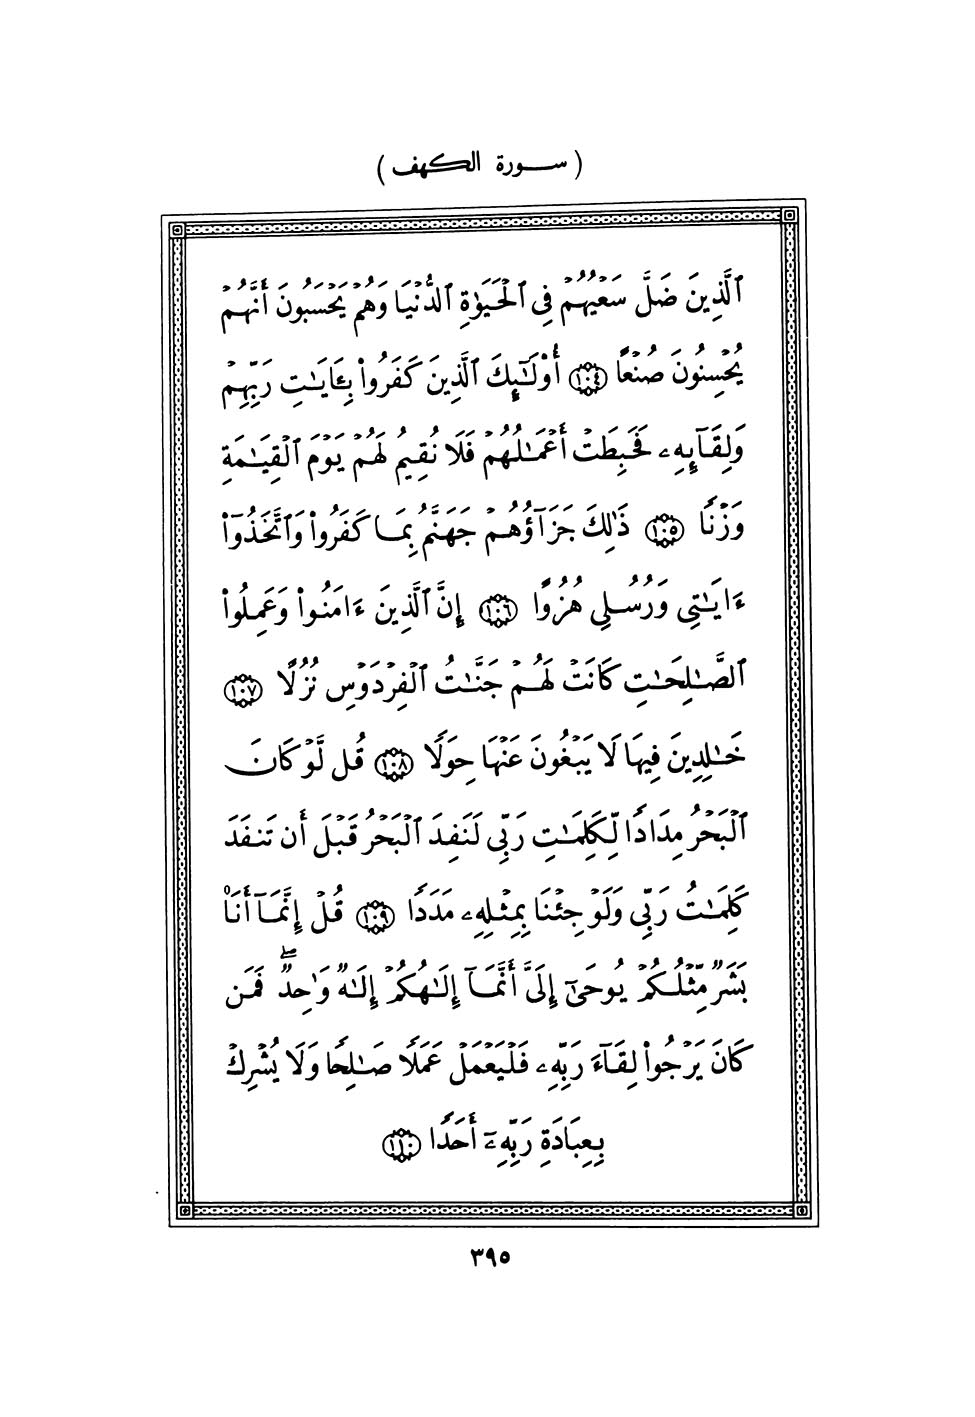 ( سورة الكهف )
ٱلَّذِينَ ضَلَّ سَعْيُهُمْ فِى ٱلْحَيَوٰةِ ٱلدُّنْيَا وَهُمْ يَحْسَبُونَ أَنَّهُمْ
يُحْسِنُونَ صُنْعًا ١٠٤ أُو۟لَـٰٓئِكَ ٱلَّذِينَ كَفَرُوا۟ بِـَٔايَـٰتِ رَبِّهِمْ
وَلِقَآئِهِۦ فَحَبِطَتْ أَعْمَـٰلُهُمْ فَلَا نُقِيمُ لَهُمْ يَوْمَ ٱلْقِيَـٰمَةِ
وَزْنًا ١٠٥ ذَٰلِكَ جَزَآؤُهُمْ جَهَنَّمُ بِمَا كَفَرُوا۟ وَٱتَّخَذُوٓا۟
ءَايَـٰتِى وَرُسُلِى هُزُوًا ١٠٦ إِنَّ ٱلَّذِينَ ءَامَنُوا۟ وَعَمِلُوا۟
ٱلصَّـٰلِحَـٰتِ كَانَتْ لَهُمْ جَنَّـٰتُ ٱلْفِرْدَوْسِ نُزُلًا ١٠٧
خَـٰلِدِينَ فِيهَا لَا يَبْغُونَ عَنْهَا حِوَلًا ١٠٨ قُل لَّوْ كَانَ
ٱلْبَحْرُ مِدَادًا لِّكَلِمَـٰتِ رَبِّى لَنَفِدَ ٱلْبَحْرُ قَبْلَ أَن تَنفَدَ
كَلِمَـٰتُ رَبِّى وَلَوْ جِئْنَا بِمِثْلِهِۦ مَدَدًا ١٠٩ قُلْ إِنَّمَآ أَنَا۠
بَشَرٌ مِّثْلُكُمْ يُوحَىٰٓ إِلَىَّ أَنَّمَآ إِلَـٰهُكُمْ إِلَـٰهٌ وَٰحِدٌ ۖ فَمَن
كَانَ يَرْجُوا۟ لِقَآءَ رَبِّهِۦ فَلْيَعْمَلْ عَمَلًا صَـٰلِحًا وَلَا يُشْرِكْ
بِعِبَادَةِ رَبِّهِۦٓ أَحَدًا ١١٠
٣٩٥